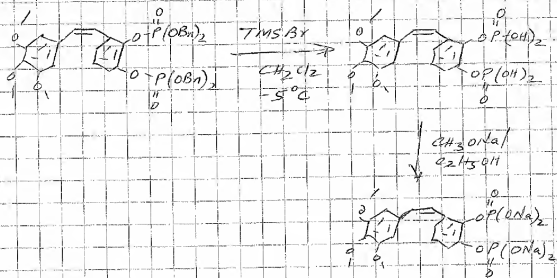 O
O-P(OBn)2
O-P(OBn)2
O
TMSBr
CH2Cl2
-5°C
O
OP(OH)2
OP(OH)2
O
CH3ONa/
C2H5OH
O
OP(ONa)2
OP(ONa)2
O